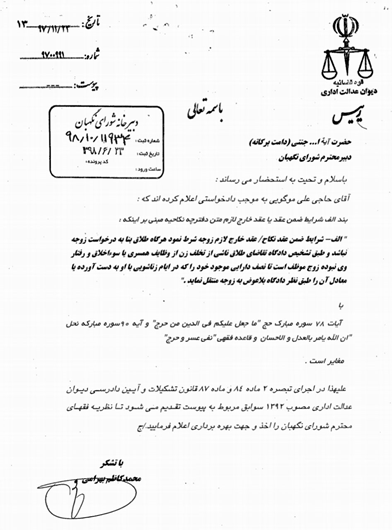 تاریخ: ۹۷/۱۱/۲۳
شماره: ۹۷۰۰۹۹۱
پیوست: ---
قوه قضائیه
دیوان عدالت اداری
رییس
باسمه تعالی
دبیرخانه شورای نگهبان
شماره ثبت:
تاریخ ثبت:
کد پرونده:
ساعت ورود:
حضرت آیة ا... جنتی (دامت برکاته)
دبیر محترم شورای نگهبان
باسلام و تحیت به استحضار می رساند :
آقای حاجی علی موگویی به موجب دادخواستی اعلام کرده اند که :
بند الف شرایط ضمن عقد یا عقد خارج لازم متن دفترچه نکاحیه مبنی بر اینکه :
" الف- شرایط ضمن عقد نکاح/ عقد خارج لازم زوجه شرط نمود هرگاه طلاق بنا به درخواست زوجه
نباشد و طبق تشخیص دادگاه تقاضای طلاق ناشی از تخلف زن از وظایف همسری یا سوءاخلاق و رفتار
وی نبوده زوج موظف است تا نصف دارایی موجود خود را که در ایام زناشویی با او به دست آورده یا
معادل آن را طبق نظر دادگاه بلاعوض به زوجه منتقل نماید ."
با
آیات ۷۸ سوره مبارک حج "ما جعل علیکم فی الدین من حرج" و آیه ۹۰ سوره مبارکه نحل
"ان الله یامر بالعدل و الاحسان و قاعده فقهی "نفی عسر و حرج"
مغایر است .
علیهذا در اجرای تبصره ۲ ماده ۸۴ و ماده ۸۷ قانون تشکیلات و آیین دادرسی دیوان
عدالت اداری مصوب ۱۳۹۲ سوابق مربوط به پیوست تقدیم می شود تا نظریه فقهای
محترم شورای نگهبان را اخذ و جهت بهره برداری اعلام فرمایید./ج
با تشکر
محمدکاظم بهرامی